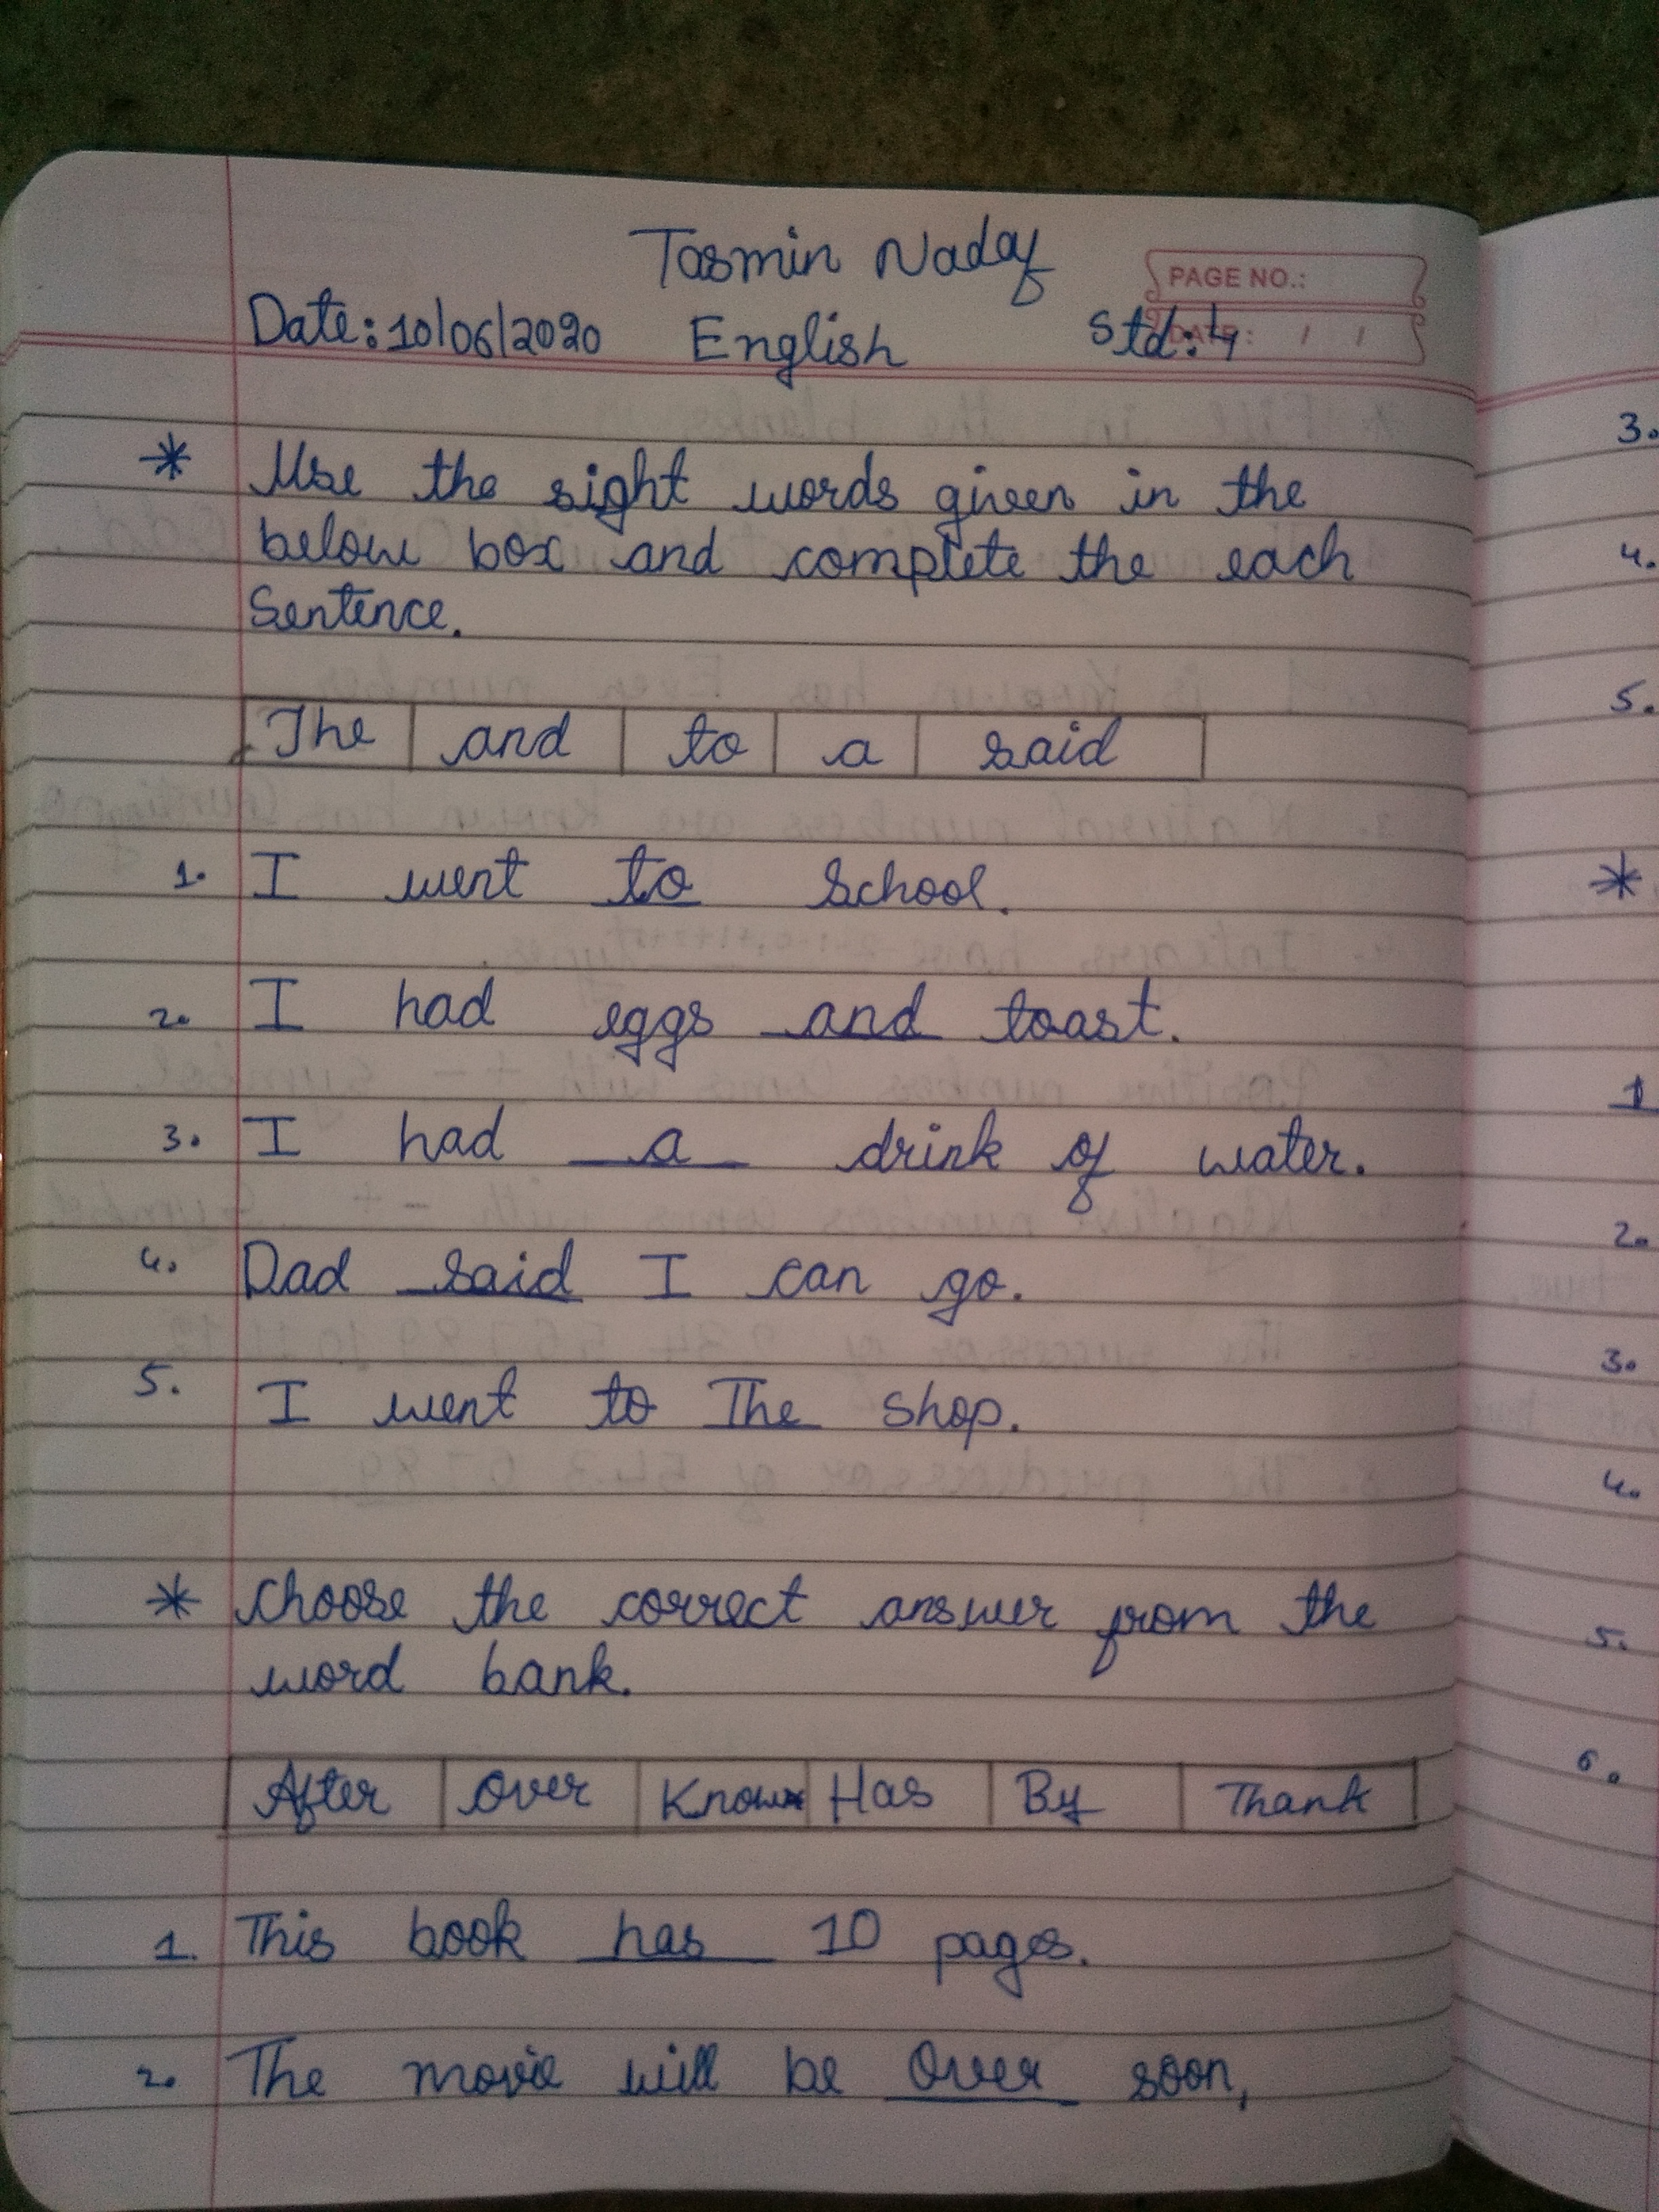 Tasmin Nadaf
PAGE NO.:
DATE: / /
Date: 10/06/2020 English Std: 4
* Use the sight words given in the
below box and complete the each
Sentence.
The and to a said
1. I went to School.
2. I had eggs and toast.
3. I had a drink of water.
4. Dad said I can go.
5. I went to The shop.
* Choose the correct answer from the
word bank.
After Over Know Has By Thank
1. This book has 10 pages.
2. The movie will be Over soon,
3.
4.
5.
*
1
2.
3.
4.
5.
6.